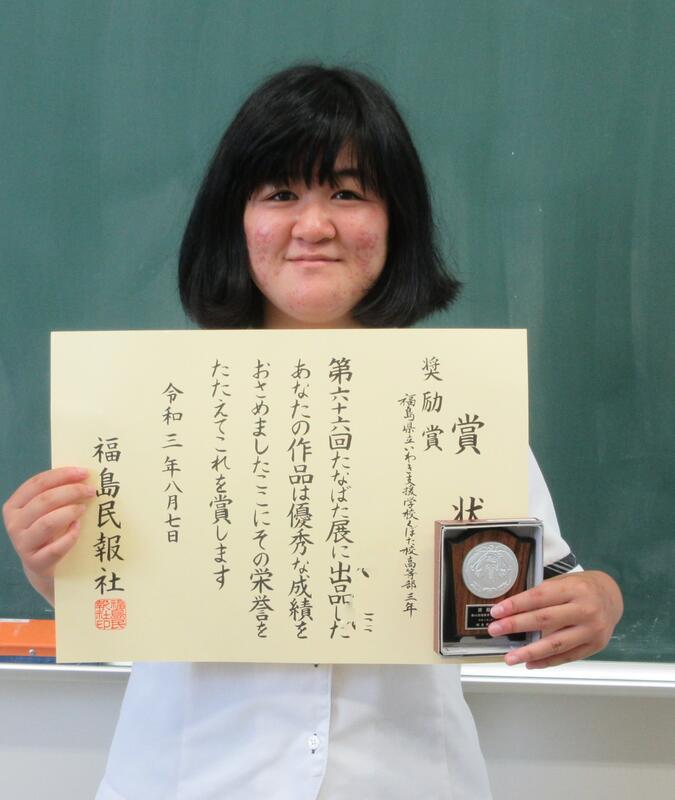 賞状
奨励賞
福島県立いわき支援学校くぼた校高等部三年
第六十六回たなばた展に出品した
あなたの作品は優秀な成績を
おさめましたここにその栄誉を
たたえてこれを賞します
令和三年八月七日
福島民報社
福島民
報社印